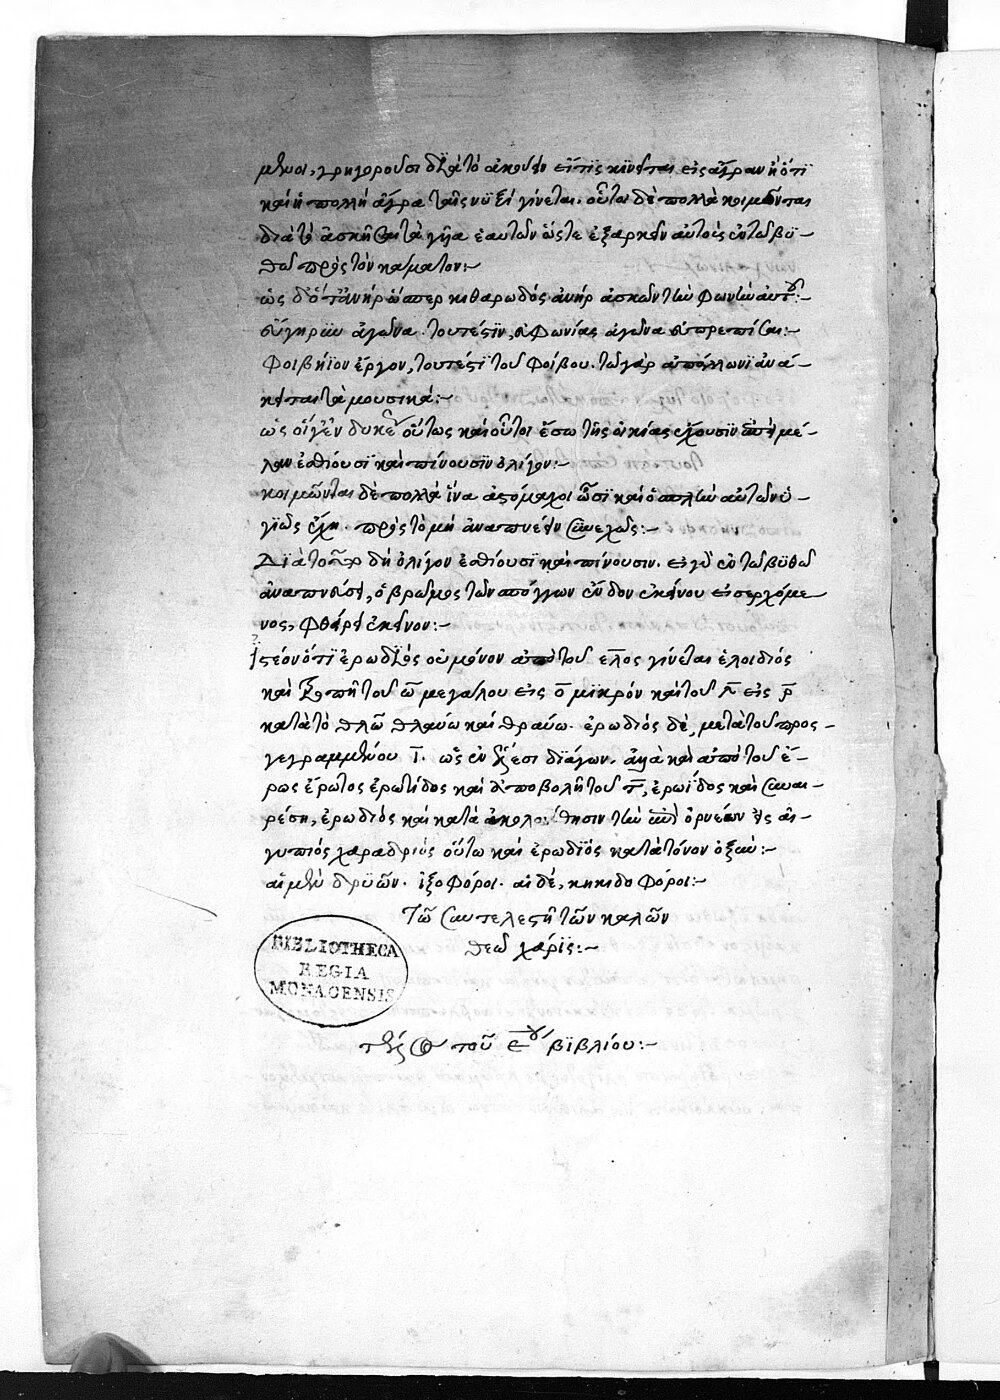 μενοι, γρηγοροῦσι διὰ τὸ ἀκούειν εἴ τις κινεῖται εἰς ἄγραν ἢ ὅτι
καὶ ἡ πολλὴ ἄγρα ταῖς νυξὶ γίνεται. οὗτοι δὲ πολλὰ κοιμῶνται
διὰ τὸ ἀσκῆσαι τὰ γῆα ἑαυτῶν ὥστε ἐξαρκεῖν αὐτοῖς ἐν τῶ βυ-
θῶ πρὸς τὸν κάματον:-
ὡς δ' ὅτ' ἀνὴρ ὥσπερ κιθαρωδὸς ἀνὴρ ἀσκῶν τὴν φωνὴν αὐτοῦ:-
εὔγηρυν ἀγῶνα. τουτέστιν, εὐφωνίας ἀγῶνα εὐπρεπίσαι:-
Φοιβήϊον ἔργον, τουτέστι τοῦ φοίβου. τῶ γὰρ ἀπόλλωνι ἀνά-
κειται τὰ μουσικά:-
ὡς οἵγε οὕτως καὶ οὗτοι ἔσω τῆς οἰκίας ἔχουσιν μέ-
λαν ἐσθίουσι καὶ πίνουσιν ὀλίγον:-
κοιμῶνται δὲ πολλὰ ἵνα ἀπόμαχοι ὦσι καὶ ὁ αὐτῶν ὑ-
γιῶς ἔχη. πρὸς τὸ μὴ ἀναπνέειν συνεχῶς:-
Διατοῦτο δὴ ὀλίγον ἐσθίουσι καὶ πίνουσιν. εἰ γὰρ ἐν τῶ βυθῶ
ἀναπνεύσει, ὁ βρῶμος τῶν σπόγγων ἔνδον ἐκείνου εἰσερχόμε-
νος, φθείρει ἐκεῖνον:-
ἰστέον ὅτι ἐρωδιὸς οὐ μόνον ἀπὸ τοῦ ἕλος γίνεται ἑλοιδιὸς
καὶ τροπῆ τοῦ ω μεγάλου εἰς ο μικρὸν καὶ τοῦ λ εἰς ρ
κατὰ τὸ θλῶ θλαύω καὶ θραύω. ἐρωδιὸς δὲ, μετὰ τοῦ προσ-
γεγραμμένου ι. ὡς ἐν ἕλεσι διάγων. ἀλλὰ καὶ ἀπὸ τοῦ ἔ-
ρως ἔρωτος ἐρωτίδος καὶ ἀποβολῆ τοῦ τ, ἐρωΐδος καὶ συναι-
ρέσει, ἐρωδιὸς καὶ κατὰ ἀκολουθησιν τῶν ὀρνέων ὡς αἰ-
γυπιὸς χαραδριὸς οὕτω καὶ ἐρωδιὸς κατὰ τόνον ὀξύν:-
αἱ μὲν δρυῶν. ἰξοφόροι. αἱ δὲ, κηκιδοφόροι:-
Τῶ συντελεστῆ τῶν καλῶν
θεῶ χάρις:-
BIBLIOTHECA
REGIA
MONACENSIS
τέλος τοῦ ε<sup>ου</sup> βιβλίου:-